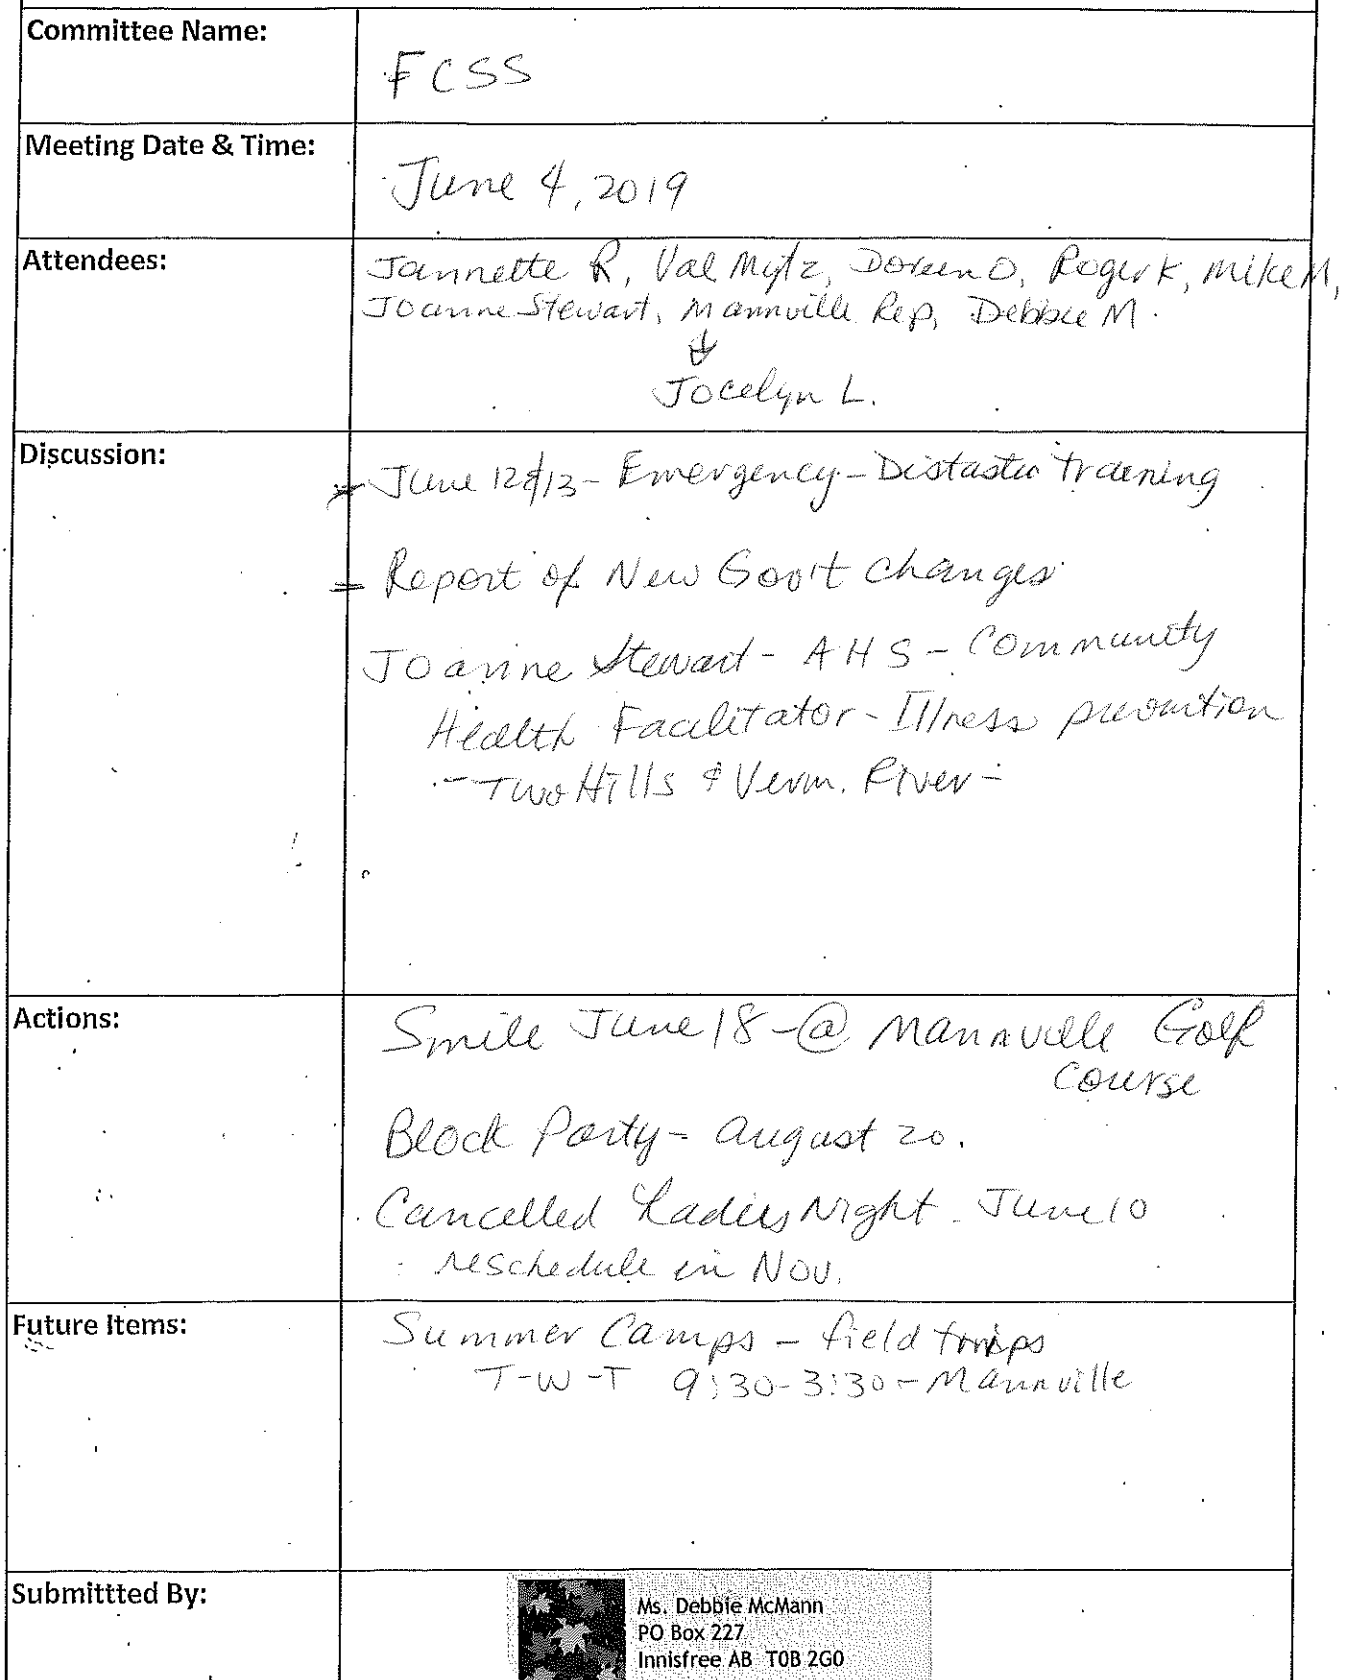 Committee Name:
FCSS
Meeting Date & Time:
June 4, 2019
Attendees:
Jannette R, Val Mytz, Doreen O, Roger K, Mike M,
Joanne Stewart, Mannville Rep, Debbie M.
Jocelyn L.
Discussion:
June 12 & 13 - Emergency - Distaster training
- Report of New Gov't changes
Joanne Stewart - AHS - Community
Health Facilitator - Illness prevention
- Two Hills & Verm. River -
Actions:
Smile June 18 - @ Mannville Golf
Course
Block Party - August 20.
Cancelled Ladies Night - June 10
reschedule in Nov.
Future Items:
Summer Camps - field trips
T-W-T 9:30-3:30 - Mannville
Submittted By:
Ms. Debbie McMann
PO Box 227
Innisfree AB T0B 2G0